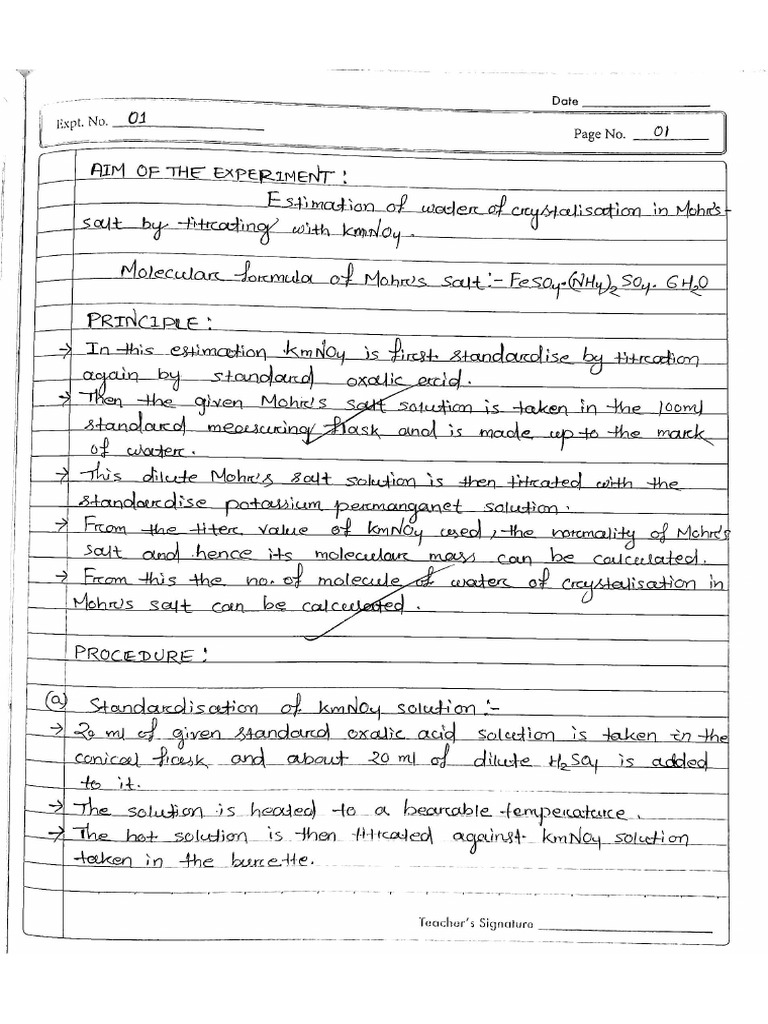 Date
Expt. No. 01
Page No. 01
AIM OF THE EXPERIMENT :
Estimation of water of crystalisation in Mohr's
salt by titrating with kmNO4.
Molecular formula of Mohr's salt :- FeSO4.(NH4)2 SO4. 6H2O
PRINCIPLE :
→ In this estimation kmNO4 is first standardise by titration
again by standard oxalic acid.
→ Then the given Mohr's salt solution is taken in the 100ml
standard measuring flask and is made up to the mark
of water.
→ This dilute Mohr's salt solution is then titrated with the
standardise potassium permanganet solution.
→ From the titer value of kmNO4 used, the normality of Mohr's
salt and hence its molecular mass can be calculated.
→ From this the no. of molecule of water of crystalisation in
Mohr's salt can be calculated.
PROCEDURE :
(a) Standardisation of kmNO4 solution :-
→ 20 ml of given standard oxalic acid solution is taken in the
conical flask and about 20 ml of dilute H2SO4 is added
to it.
→ The solution is heated to a bearable temperature.
→ The hot solution is then titrated against kmNO4 solution
taken in the burette.
Teacher's Signature